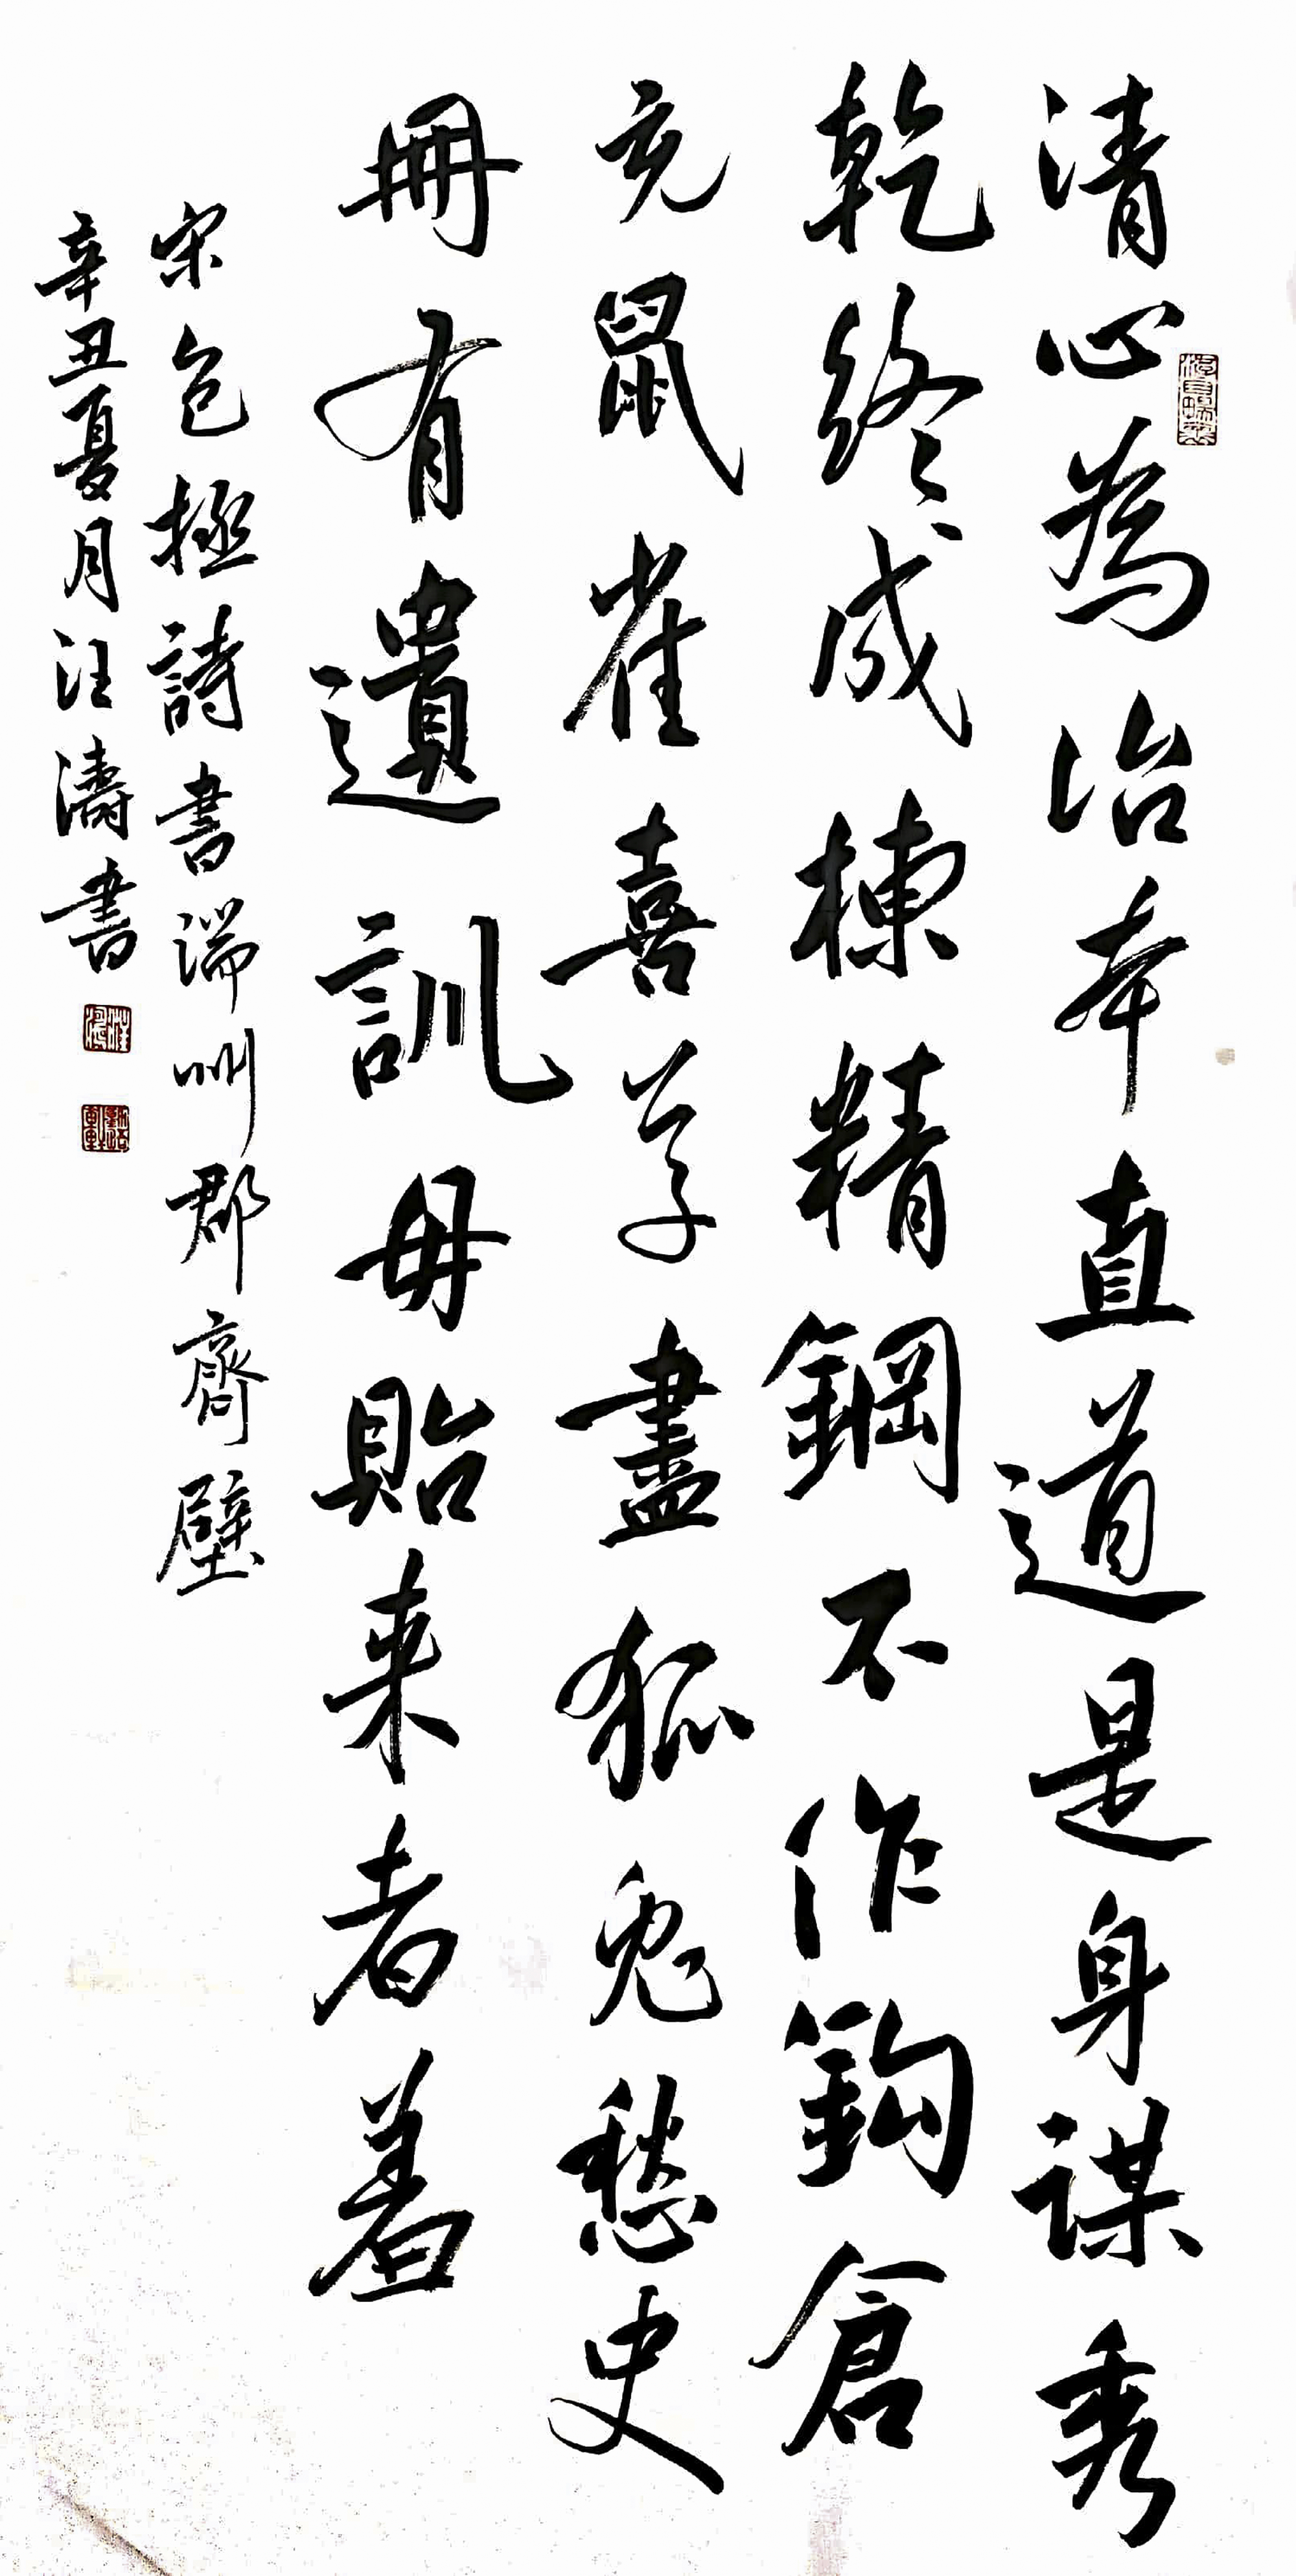 清心為治本直道是身謀秀
乾終成棟精鋼不作鈎倉
充鼠雀喜草盡狐兔愁史
冊有遺訓毋貽来者羞
宋包拯詩書端州郡齋壁
辛丑夏月汪濤書